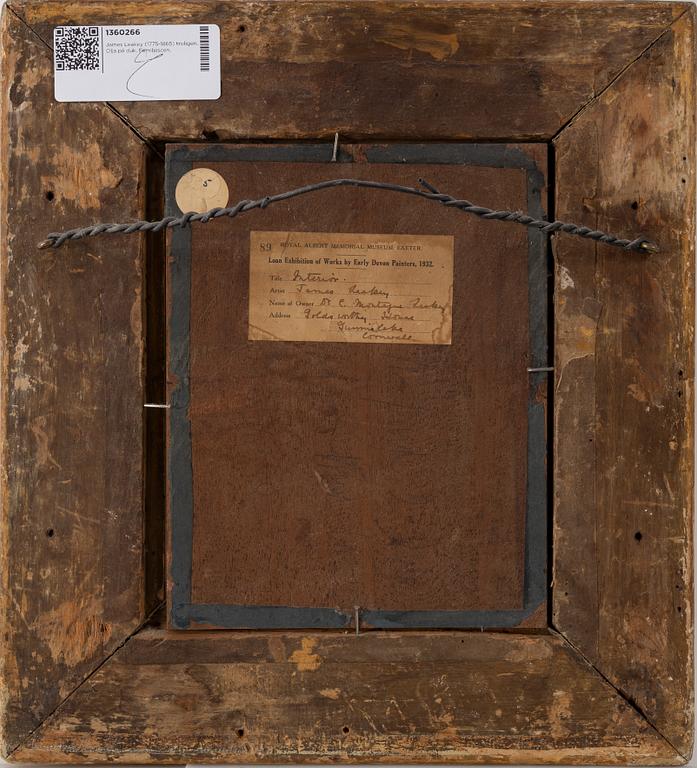 1360266
James Leakey (1775-1865) troligen,
Olja på duk, Familjescen.
5
89 ROYAL ALBERT MEMORIAL MUSEUM EXETER.
Loan Exhibition of Works by Early Devon Painters, 1932.
Title Interior.
Artist James Leakey
Name of Owner Dr C. Montague Leakey
Address Goldsworthy House
Gunnislake
Cornwall